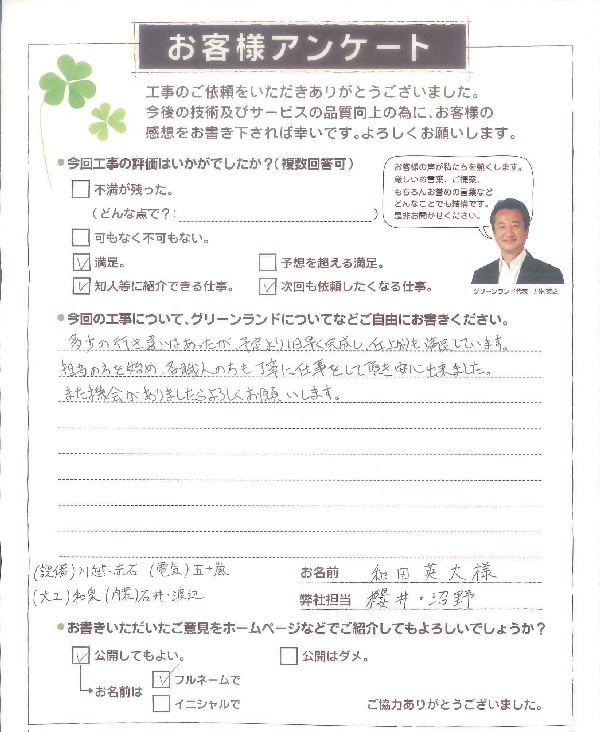 お客様アンケート
工事のご依頼をいただきありがとうございました。
今後の技術及びサービスの品質向上の為に、お客様の
感想をお書き下されば幸いです。よろしくお願いします。
今回工事の評価はいかがでしたか？(複数回答可)
不満が残った。
(どんな点で？: )
可もなく不可もない。
満足。
予想を超える満足。
知人等に紹介できる仕事。
次回も依頼したくなる仕事。
お客様の声が私たちを熱くします。
厳しいお言葉、ご提案、
もちろんお誉めの言葉など
どんなことでも結構です。
是非お聞かせください。
グリーンランド代表
今回の工事について、グリーンランドについてなどご自由にお書きください。
多少の行き違いはあったが、予定より1日早く完成し、仕上がりも満足しています。
担当の方を始め、各職人の方も丁寧に仕事をして頂き安心出来ました。
また機会がありましたらよろしくお願いします。
(設備)川越・赤石 (電気)五十嵐
(大工)和泉 (内装)石井・渡辺
お名前 和田英大様
弊社担当 櫻井・沼野
お書きいただいたご意見をホームページなどでご紹介してもよろしいでしょうか？
公開してもよい。
公開はダメ。
お名前は
フルネームで
イニシャルで
ご協力ありがとうございました。